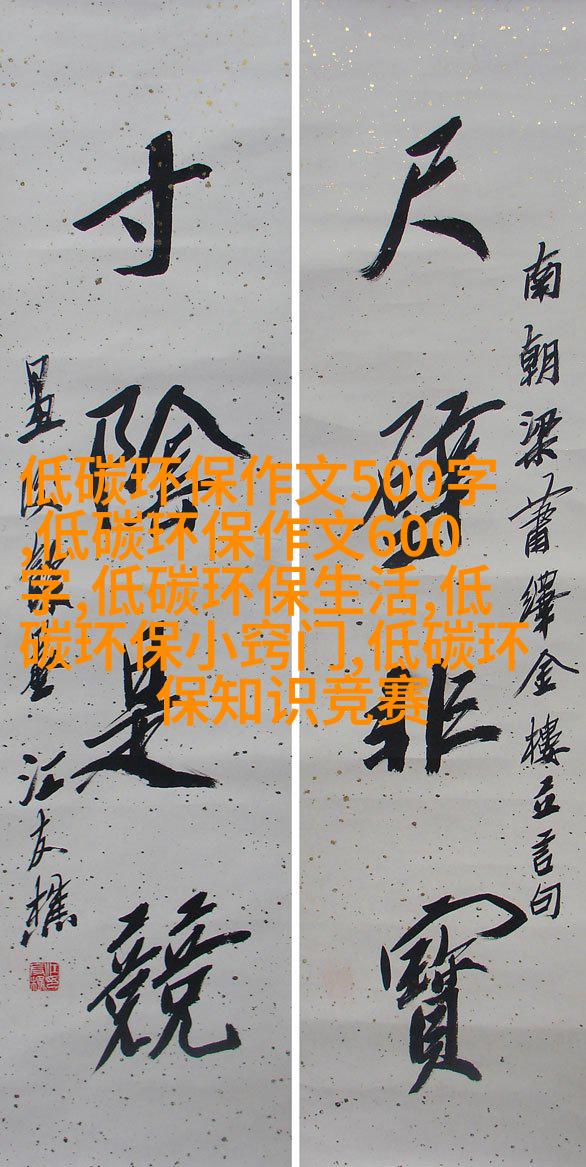 南朝梁蕭繹金樓立言句
尺璧非寶
寸陰是競
汪友樵
低碳环保作文500字
,低碳环保作文600
字,低碳环保生活,低
碳环保小窍门,低碳环
保知识竞赛